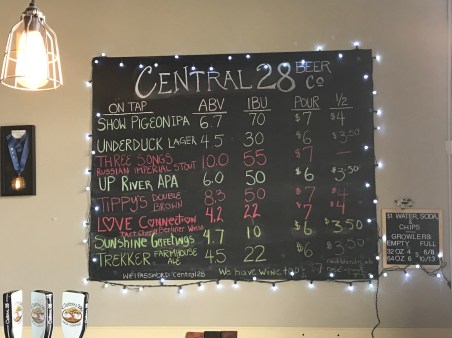 CENTRAL 28 BEER CO
ON TAP ABV IBU POUR 1/2
SHOW PIGEON IPA 6.7 70 $7 $4
UNDERDUCK LAGER 4.5 30 $6 $3.50
THREE SONGS RUSSIAN IMPERIAL STOUT 10.0 55 $7 —
UP RIVER APA 6.0 50 $6 $3.50
TIPPY'S DOUBLE BROWN 8.3 50 $7 $4
LOVE CONNECTION 4.2 22 $7 $4
Berliner Weisse
Sunshine Greetings 4.7 10 $6 $3.50
TREKKER FARMHOUSE ALE 4.5 22 $6 $3.50
WIFI PASSWORD: Central28 We have Wine too $7
$1 WATER, SODA,
CHIPS
GROWLERS
EMPTY FULL
32 OZ 4 6/8
64 OZ 6 10/13